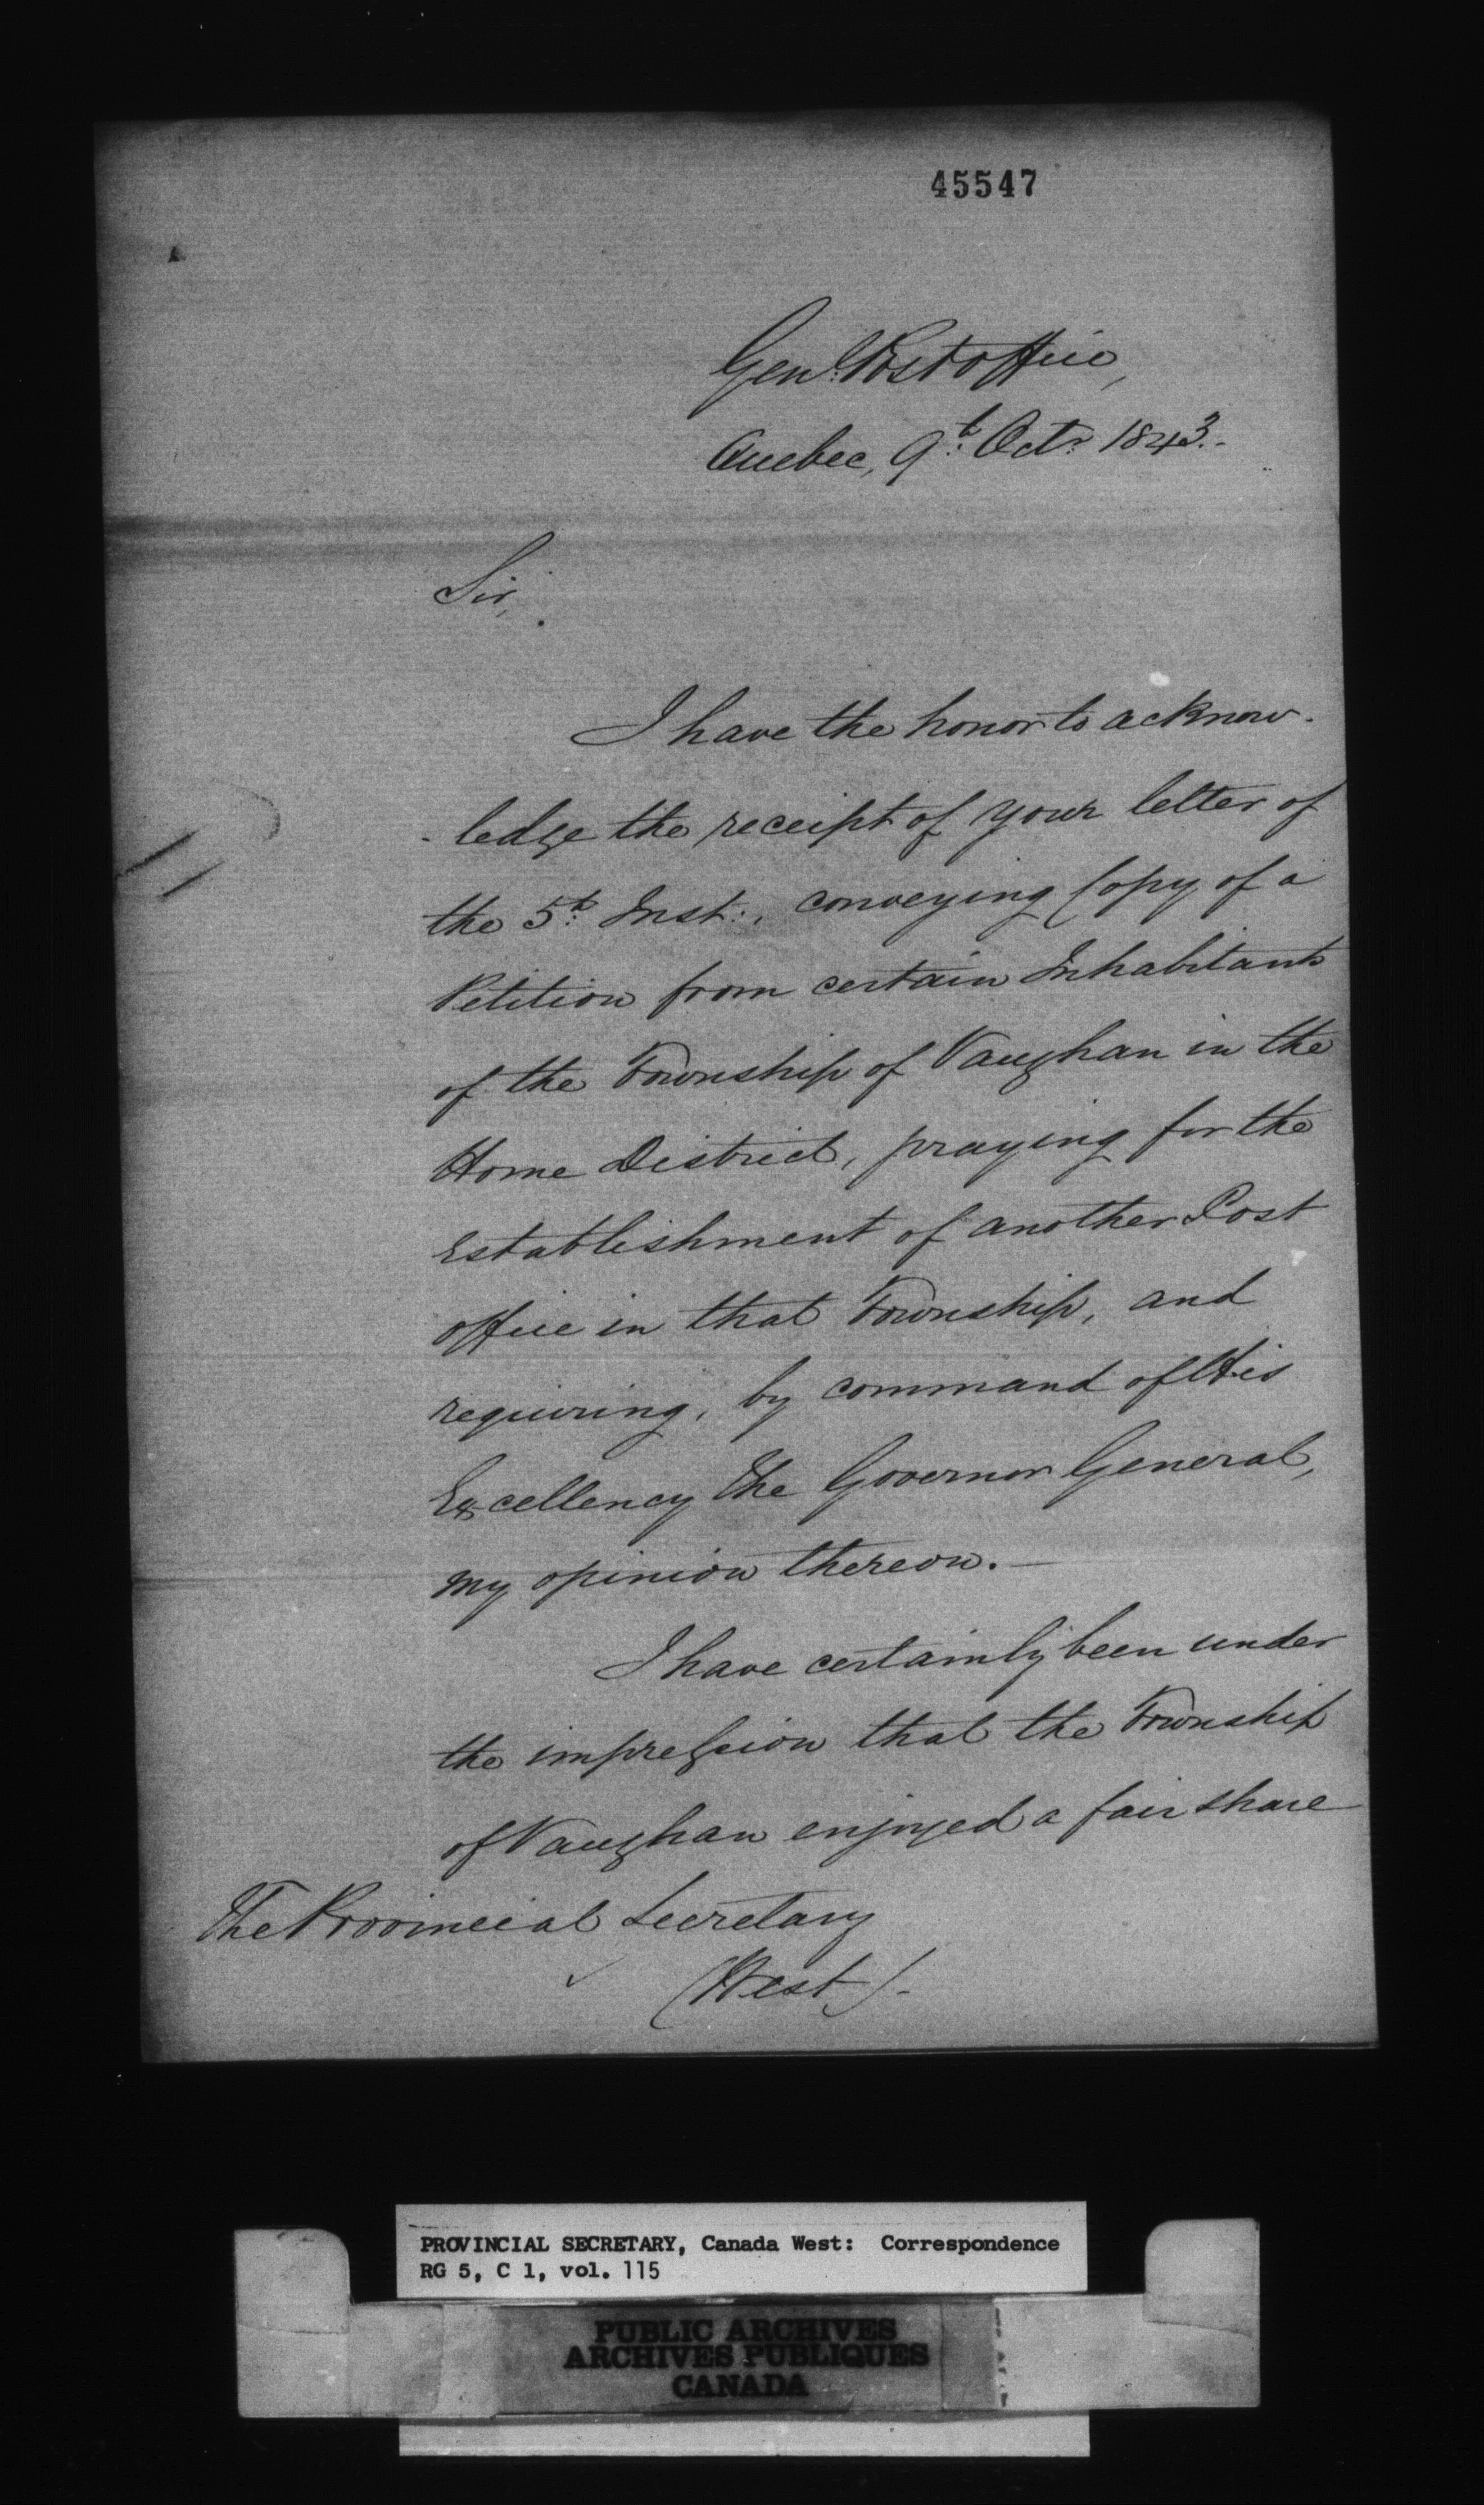 45547
Genl. Post office,
Quebec, 9th. Octr. 1843.-
Sir,
I have the honor to acknow-
-ledge the receipt of your letter of
the 5th. Inst:, conveying Copy of a
Petition from certain Inhabitants
of the Township of Vaughan in the
Home District, praying for the
establishment of another Post
office in that Township, and
requiring, by command of His
Excellency The Governor General,
my opinion thereon.—
I have certainly been under
the impression that the Township
of Vaughan enjoyed a fair share
The Provincial Secretary
(West).-
PROVINCIAL SECRETARY, Canada West: Correspondence
RG 5, C 1, vol. 115
PUBLIC ARCHIVES
ARCHIVES PUBLIQUES
CANADA